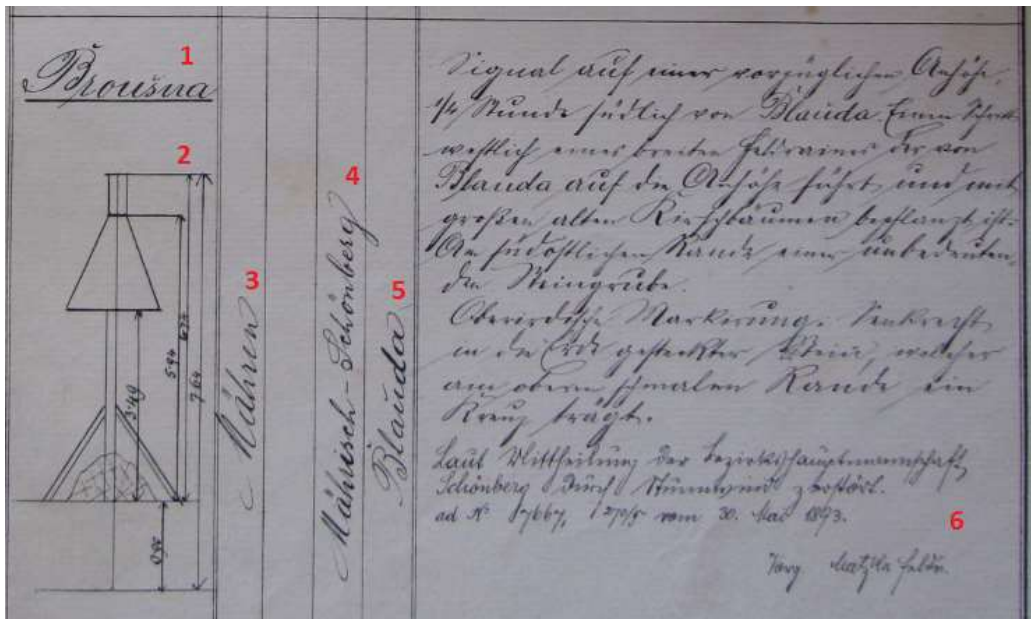 Broušna
1
2
3
4
5
6
Mähren
Mährisch-Schönberg
Blauda
3·49
5·94
7·64
Signal auf einer vorzüglichen Anhöhe,
1/4 Stunde südlich von Blauda. Einen Schritt
westlich eines breiten Feldraines der von
Blauda auf die Anhöhe führt und mit
großen alten Kirschbäumen bepflanzt ist.
Am südöstlichen Rande einer unbedeuten-
den Steingrube.
Oberirdische Markirung: Senkrecht
in die Erde gesteckter Stein, welcher
am oberen schmalen Rande ein
Kreuz trägt.
Laut Mittheilung der Bezirkshauptmannschaft
Schönberg durch Sturmwind zerstört.
ad No 7667, vom 30. Mai 1893.